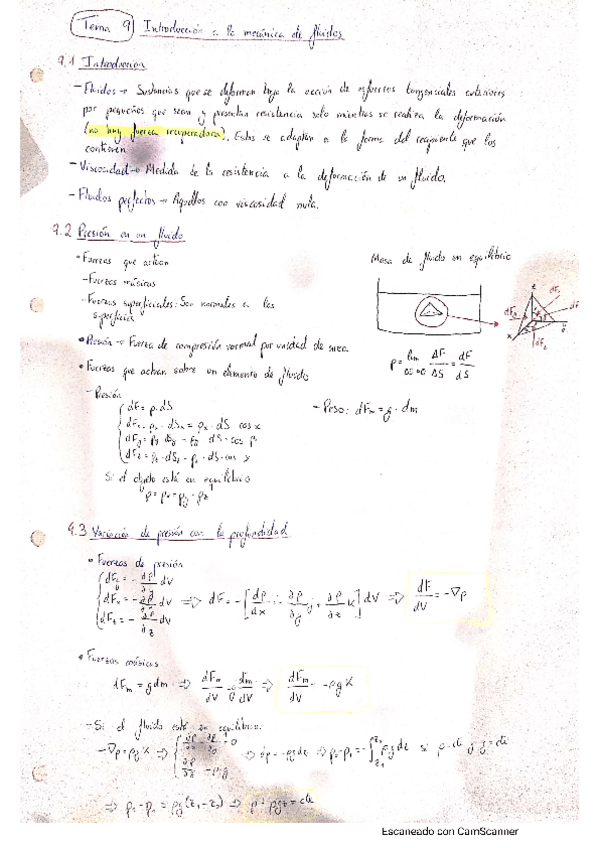 Tema 9 Introducción a la mecánica de fluidos
9.1 Introducción
- Fluidos → Sustancias que se deforman bajo la acción de esfuerzos tangenciales exteriores
por pequeños que sean y presentan resistencia solo mientras se realiza la deformación
(no hay fuerza recuperadora). Estos se adaptan a la forma del recipiente que los
contienen
- Viscosidad → Medida de la resistencia a la deformación de un fluido.
- Fluidos perfectos → Aquellos con viscosidad nula.
9.2 Presión en un fluido
• Fuerzas que actúan
- Fuerzas másicas
- Fuerzas superficiales: Son normales a las
superficies
Masa de fluido en equilibrio
• Presión → Fuerza de compresión normal por unidad de
p = lim ΔF/ΔS = dF/dS
ΔS→0
• Fuerzas que actúan sobre un elemento de fluido
- Presión
dF = p·dS
dFx = px·dSx = px·dS cos α
dFy = py dSy = py dS·cos β
dFz = pz·dSz = pz·dS·cos γ
- Peso: dFm = g·dm
Si el objeto está en equilibrio
p = px = py = pz
9.3 Variación de presión con la profundidad
• Fuerzas de presión
dF = -[∂p/∂x i + ∂p/∂y j + ∂p/∂z k] dV ⇒ dF/dV = -∇p
• Fuerzas másicas
dFm = g dm ⇒ dFm/dV = g dm/dV ⇒ dFm/dV = -ρg k
- Si el fluido está en equilibrio:
⇒ dp = -ρg dz ⇒ p2-p1 = -∫ρg dz si ρ=cte y g=cte
⇒ p2 - p1 = ρg(z1-z2) ⇒ p + ρgz = cte
Escaneado con CamScanner